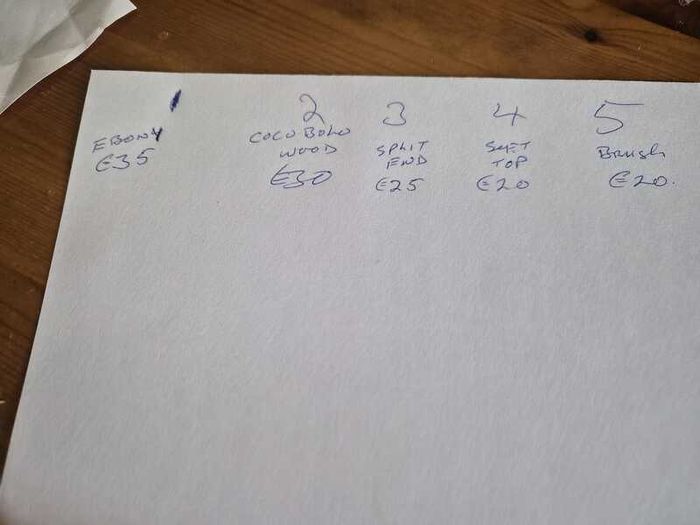 1 2 3 4 5
EBONY COCOBOLO WOOD SPLIT END TOP BRUSH
€35 €30 €25 €20 €20.